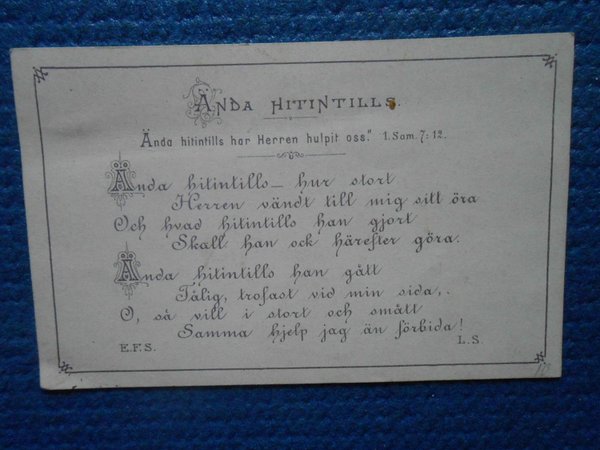 ÄNDA HITINTILLS.
Ända hitintills har Herren hulpit oss." 1. Sam. 7: 12.
Ända hitintills — hur stort
Herren vändt till mig sitt öra
Och hvad hitintills han gjort
Skall han ock härefter göra.
Ända hitintills han gått
Tålig, trofast vid min sida,.
O, så vill i stort och smått
Samma hjelp jag än förbida!
E.F.S. L.S.